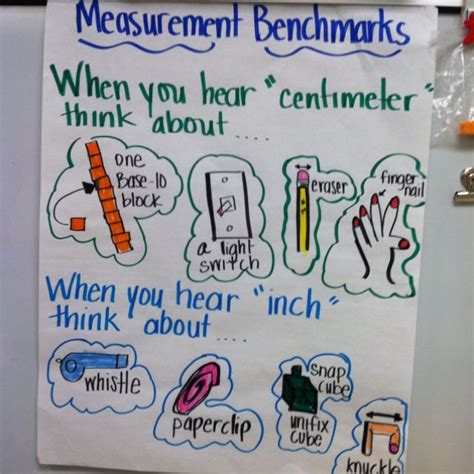 Measurement Benchmarks
When you hear "centimeter"
think about ....
one
Base-10
block
a light
switch
eraser
finger
nail
When you hear "inch"
think about ....
whistle
paperclip
snap
cube
unifix
cube
knuckle